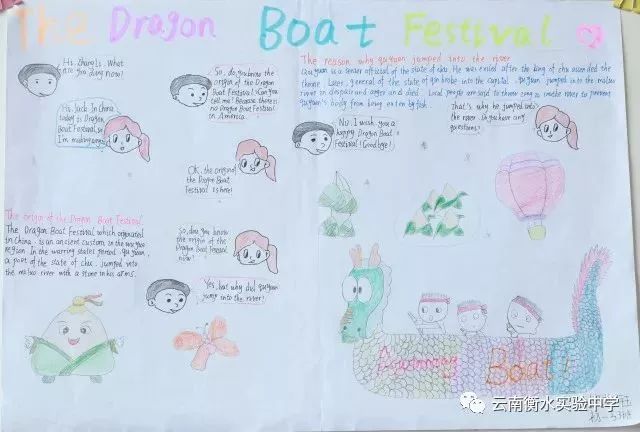 The Dragon Boat Festival
Hi, Zhang Li. What
are you doing now?
Hi, Jack. In China
today is Dragon
Boat Festival, so
I'm making
So, do you know the
origin of the Dragon
Boat Festival? Can you
tell me? Because there is
no Dragon Boat Festival
in America.
OK, the origin of
the Dragon Boat
Festival is here!
The origin of the Dragon Boat Festival
The Dragon Boat Festival which originated
in China. is an ancient custom in the
region. In the warring states period. qu yuan,
a poet of the state of chu. jumped into
the miluo river with a stone in his arms.
So, do you know
the origin of the
Dragon Boat Festival
now?
Yes, but why did quyuan
jump into the river?
The reason why quyuan jumped into the river
Quyuan is a senior official of the state of chu. He was exiled after the king of chu ascended the
throne. Later, general of the state of qin broke into the capital. quyuan jumped into the miluo
river in despair and anger and died. Local people are said to throw zong zi into the river to prevent
quyuan's body from being eaten by fish.
That's why he jumped into
the river. Do you have any
questions?
No. I wish you a
happy Dragon Boat
Festival! Goodbye!
Boat!
云南衡水实验中学